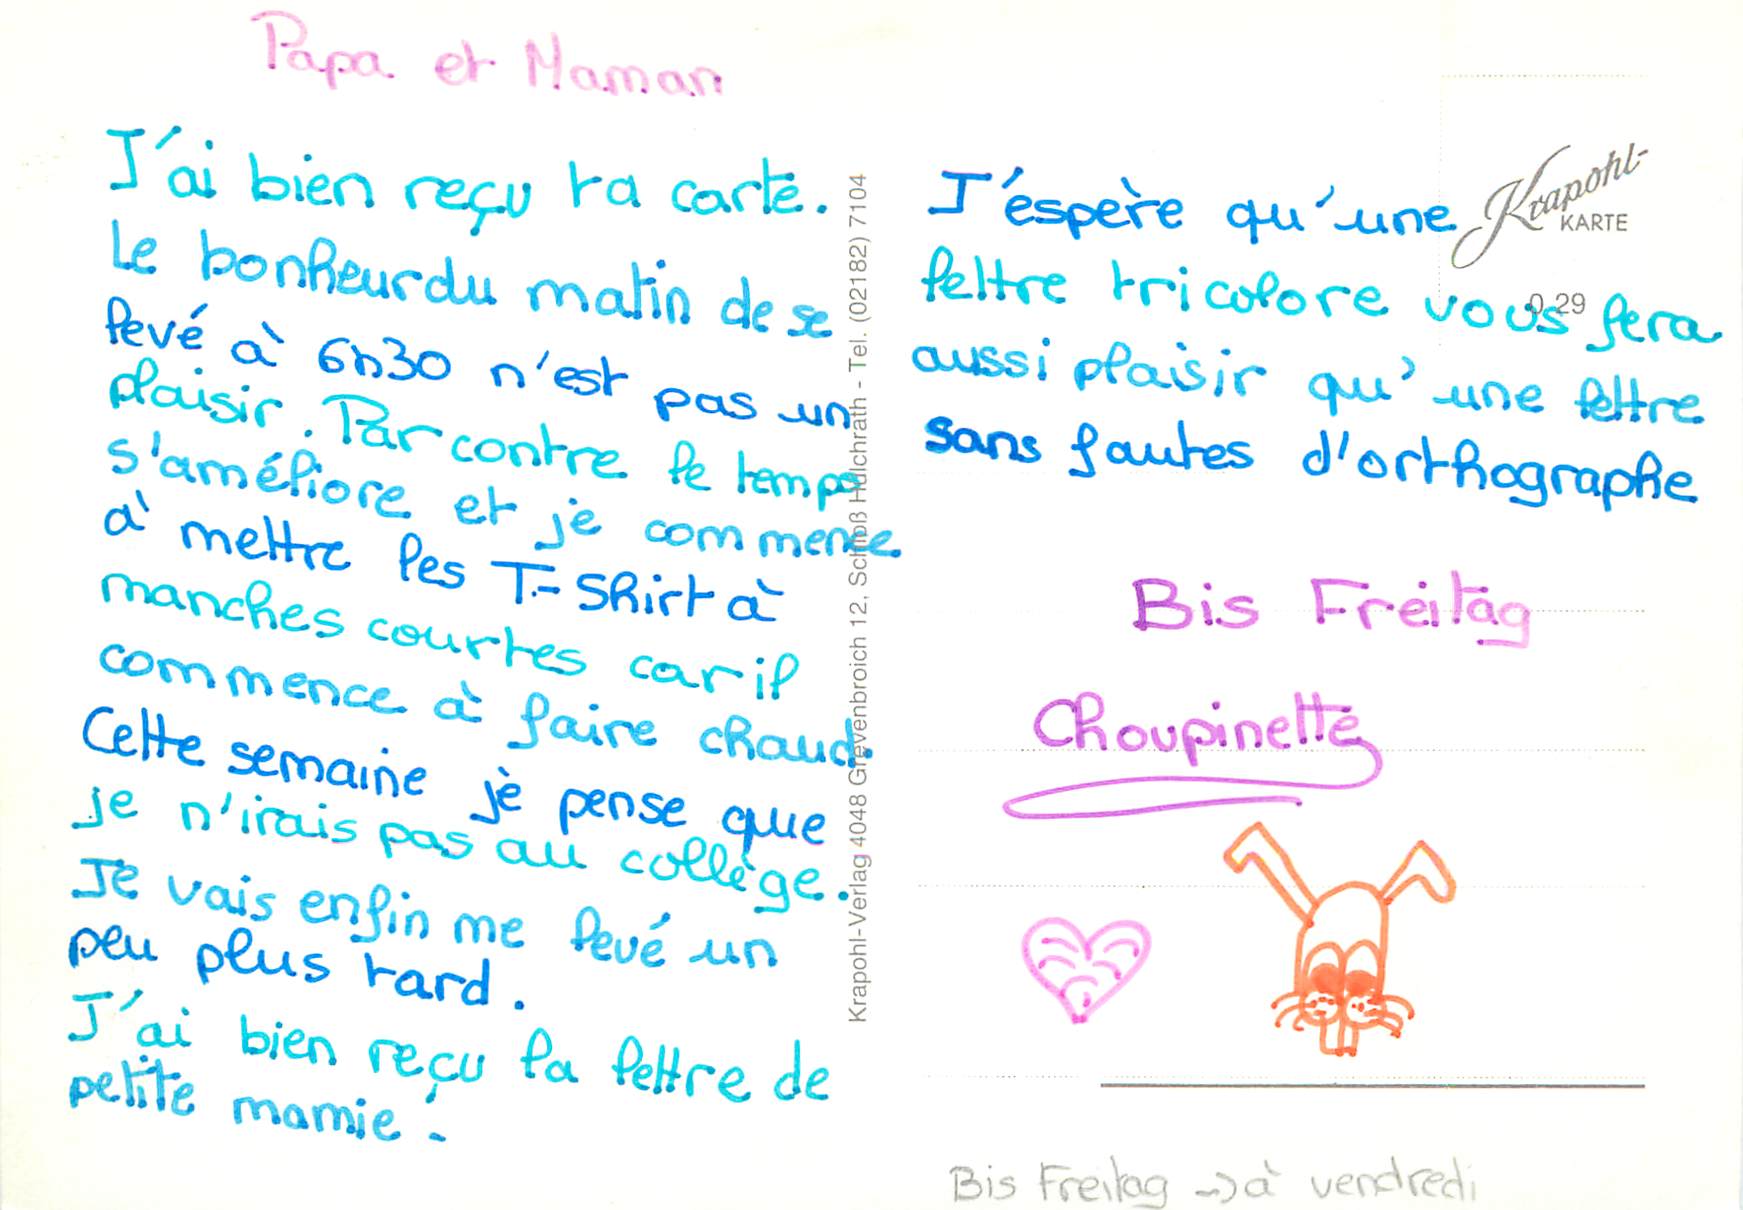 Papa et Maman
J'ai bien reçu ta carte.
Le bonheur du matin de se
levé à 6h30 n'est pas un
plaisir. Par contre le temps
s'améliore et je commence
à mettre les T-Shirt à
manches courtes car il
commence à faire chaud.
Cette semaine je pense que
je n'irais pas au collège.
Je vais enfin me levé un
peu plus tard.
J'ai bien reçu la lettre de
petite mamie.
Krapohl-Verlag 4048 Grevenbroich 12, Schloß Hülchrath - Tel. (02182) 7104
Krapohl-
KARTE
0,29
J'éspère qu'une
lettre tricolore vous fera
aussi plaisir qu'une lettre
sans fautes d'orthographe
Bis Freitag
Choupinette
Bis Freitag -> à vendredi